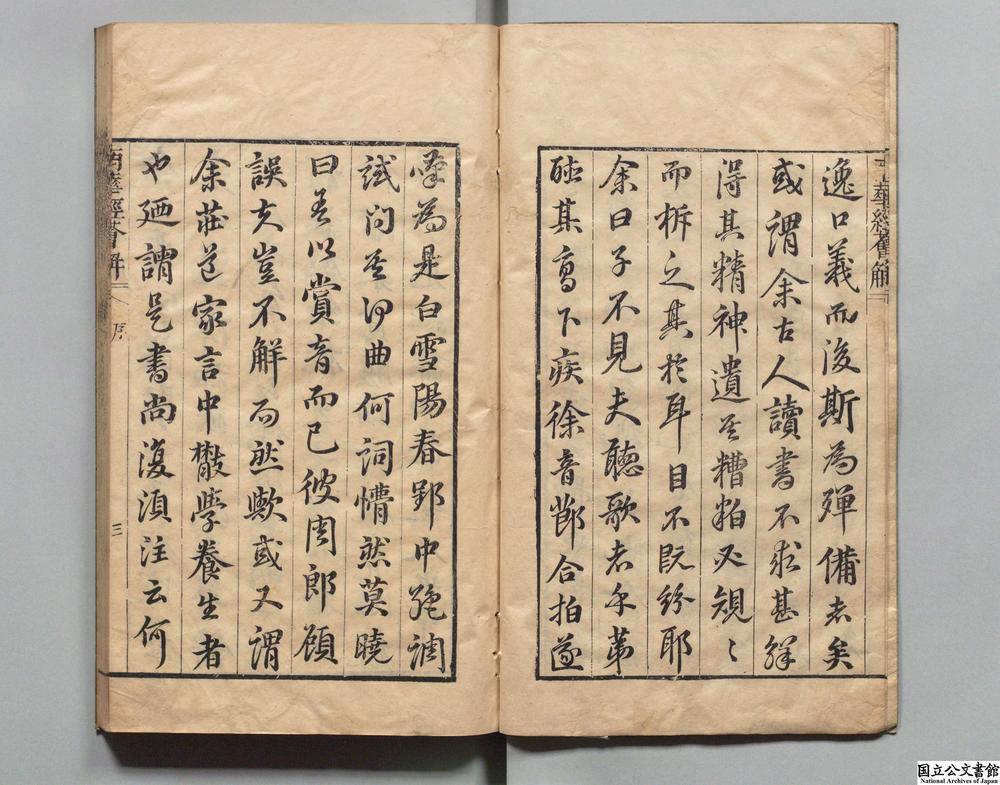 逸口義而後斯為殫備者矣
或謂余古人讀書不求甚解
得其精神遺其糟粕必規〻
而析之其於耳目不既紛耶
余曰子不見夫聽歌者乎第
其高下疾徐音節合拍遂
為是白雪陽春郢中絕調
試問其何曲何詞懵然莫曉
曰吾以賞音而已彼周郎顧
誤夫豈不解而然歟或又謂
余莊老家言中髮學養生者
也廼謂是書尚復須注云何
南華經薈解
序
三
華經薈解
国立公文書館
National Archives of Japan